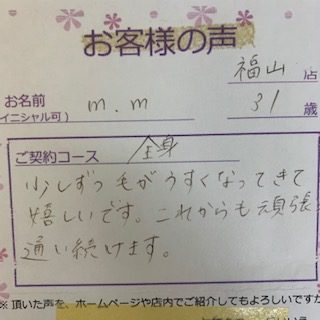 お客様の声
福山店
お名前
(イニシャル可)
m.m
31歳
ご契約コース 全身
少しずつ毛がうすくなってきて
嬉しいです。これからも頑張
通い続けます。
※頂いた声を、ホームページや店内でご紹介してもよろしいですか